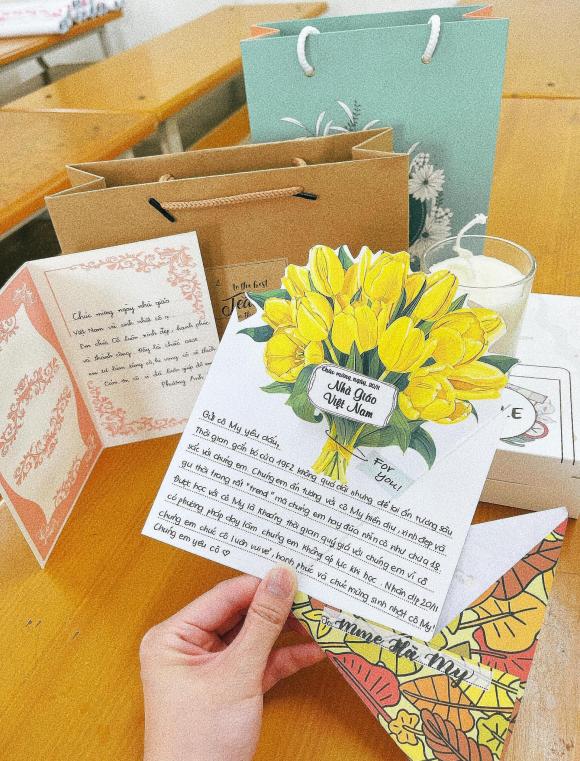 to the best
Chúc mừng ngày nhà giáo
Việt Nam và sinh nhật cô
Em chúc Cô luôn xinh đẹp, hạnh phúc
và thành công. Đây là chiếc
em tự làm bằng
Cảm ơn cô vì đã luôn giúp đỡ em
Phương Anh
Chúc mừng ngày 20/11
Nhà Giáo
Việt Nam
For
you!
Gửi cô My yêu dấu,
Thời gian gắn bó của 19E2 không quá dài nhưng để lại ấn tượng sâu
sắc với chúng em. Chúng em ấn tượng về cô My hiền dịu, xinh đẹp và
gu thời trang rất "trend" mà chúng em hay đùa nhìn cô như chưa 18.
Được học với cô My là khoảng thời gian quý giá với chúng em vì cô
có phương pháp dạy làm chúng em không áp lực khi học. Nhân dịp 20/11
chúng em chúc cô luôn vui vẻ, hạnh phúc và chúc mừng sinh nhật cô My!
Chúng em yêu cô ♡
To: Mme Hà My